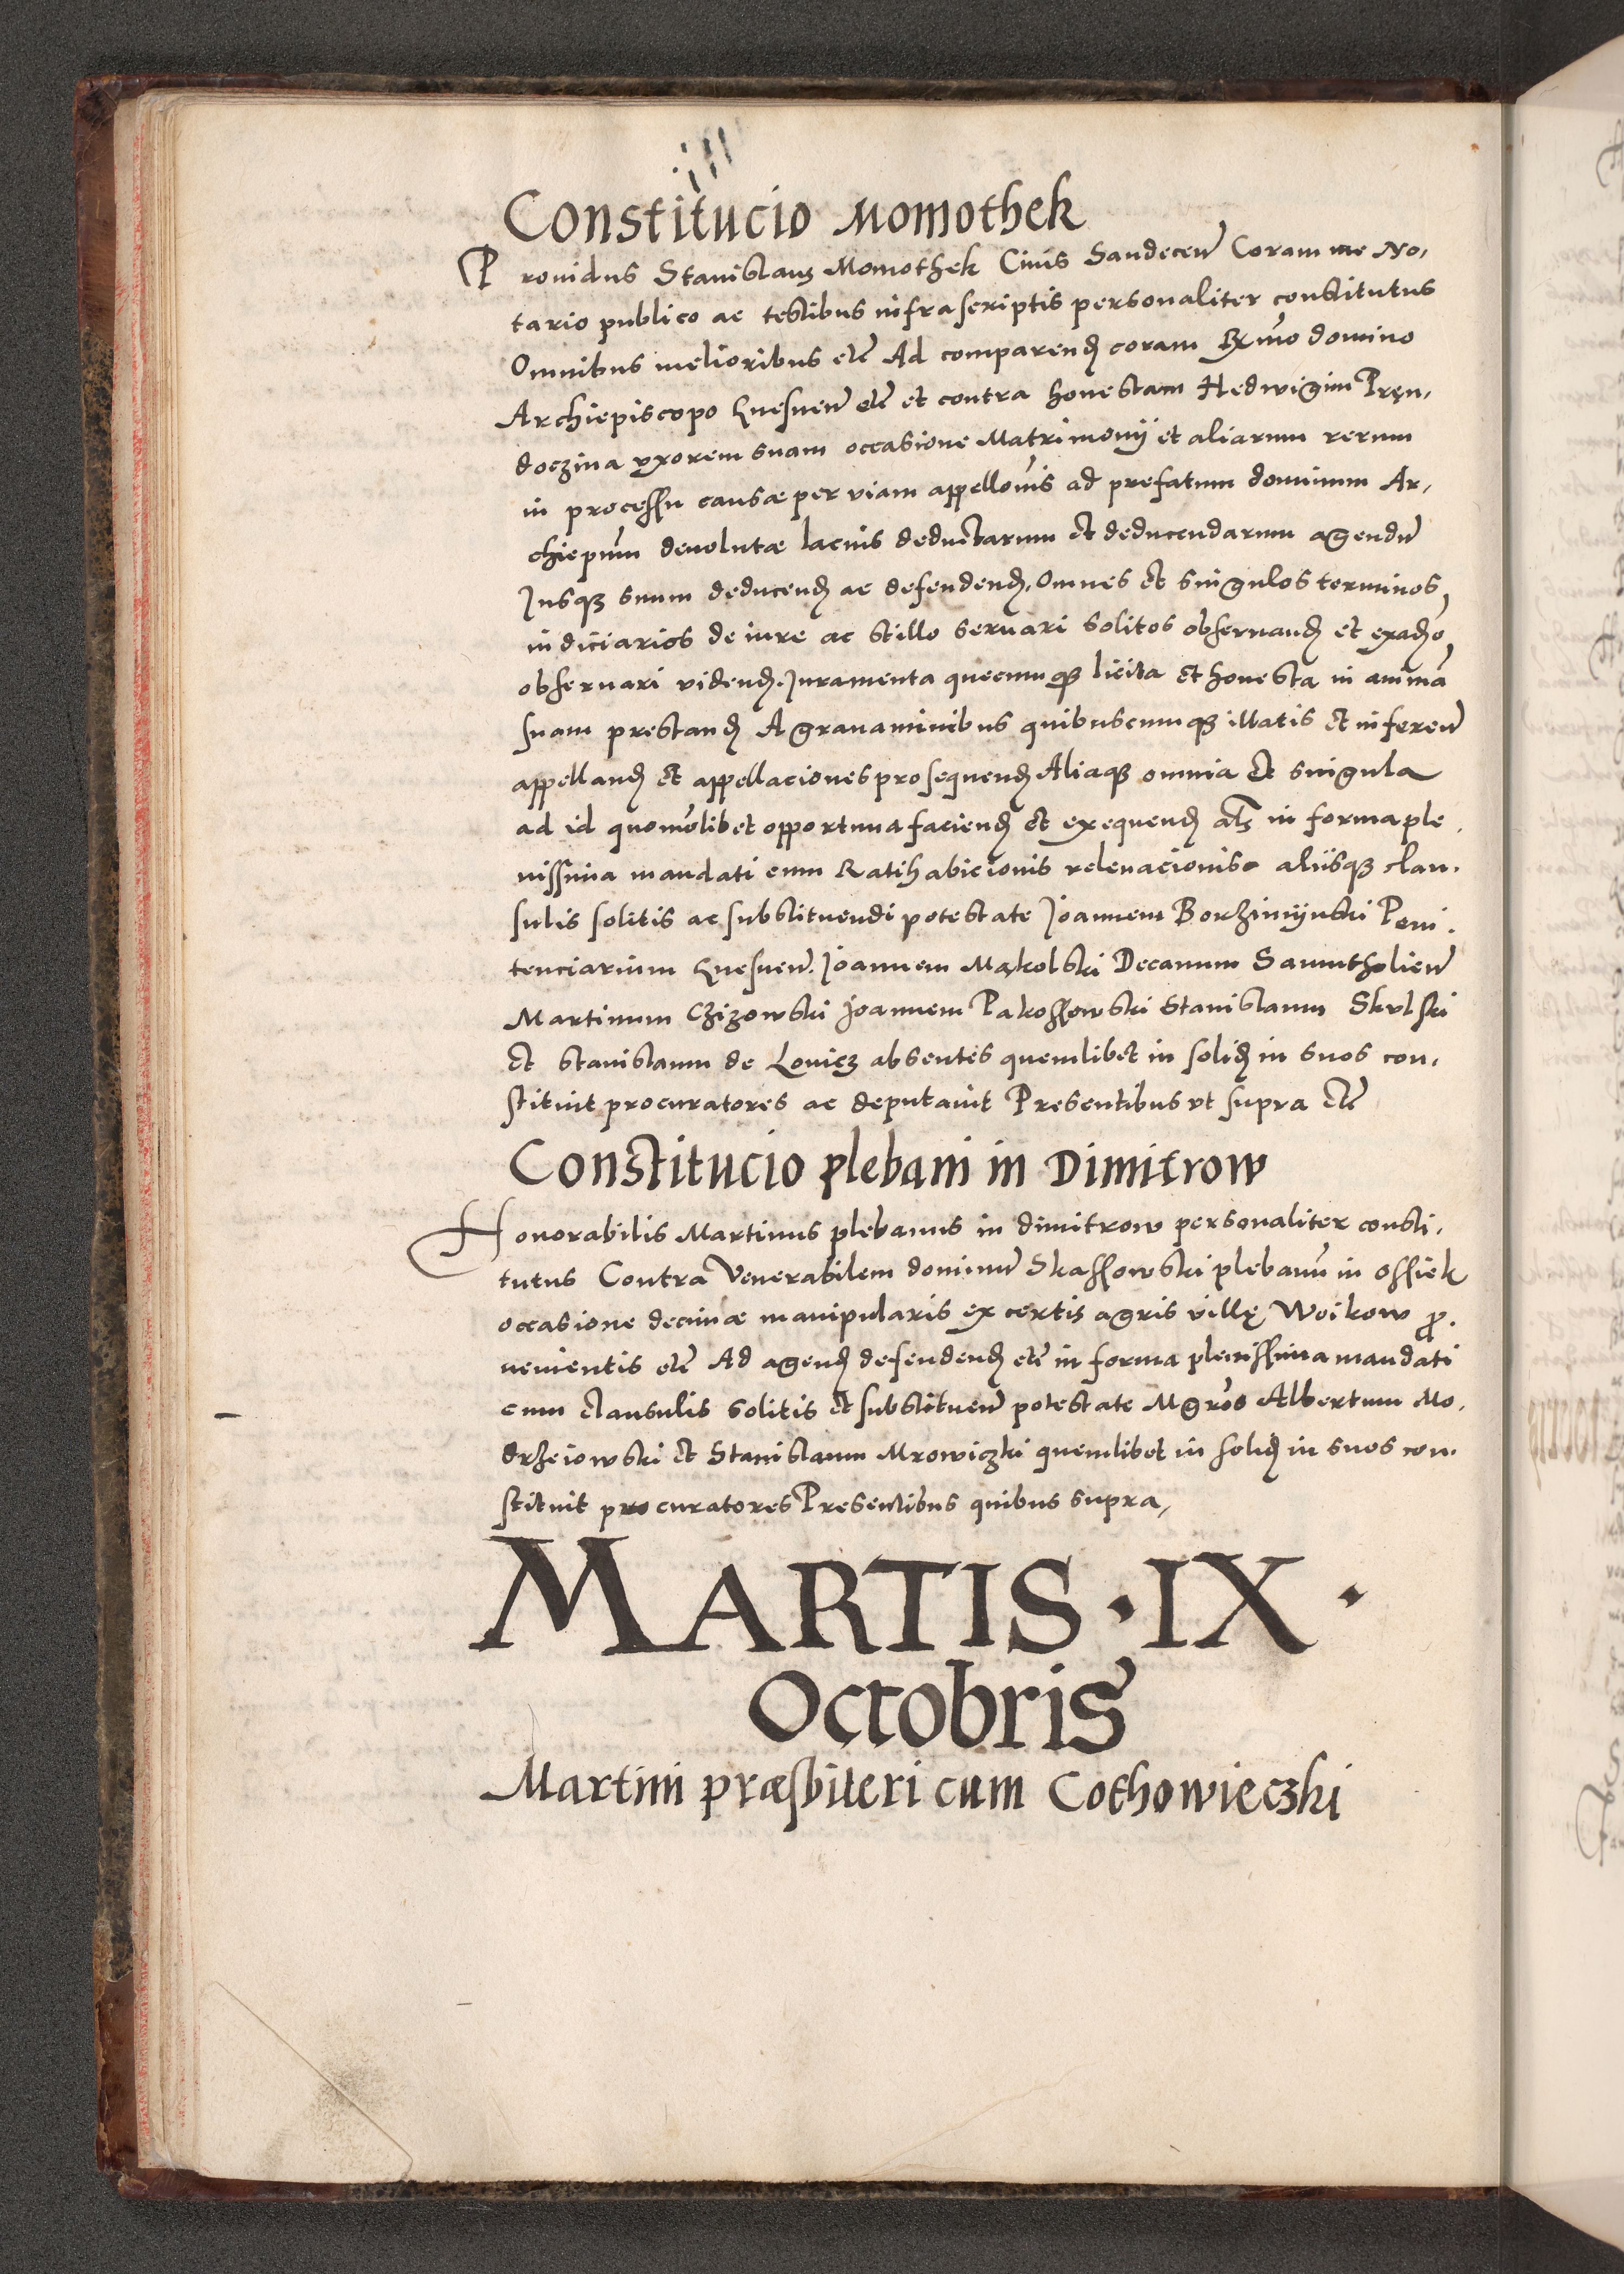 Constitucio Momothek
Prouidus Stanislaus Momothek Ciuis Sandeceñ Coram me No,
tario publico ac testibus infrascriptis personaliter constitutus
Omnibus melioribus etc̃ Ad comparenđ coram Rx̃mo domino
Archiepiscopo Gnesneñ etc̃ et contra honestam Hedwigim Pręn,
doczina vxorem suam occasione Matrimonij et aliarum rerum
in processu causæ per viam appellõnis ad prefatum dominum Ar,
chiepũm deuolutæ lacius deductarum et deducendarum agendũ
Jusqꝫ suum deducenđ ac defendenđ. Omnes et singulos terminos
iudiciarios de iure ac stillo seruari solitos obseruanđ et ex adꝫo
obseruari videnđ. Juramenta quecumqꝫ licita et honesta in animã
suam prestanđ A grauaminibus quibuscumqꝫ illatis et infereñ
appellanđ et appellaciones prosequenđ Aliaqꝫ omnia et singula
ad id quomõlibet opportuna facienđ et exequenđ alꝭ in forma ple,
nissima mandati cum Ratihabicionis releuacionis aliisqꝫ clau,
sulis solitis ac substituendi potestate Joannem Borzimijnski Peni,
tenciarium Gnesneñ. Joannem Mąkolski Decanum Sanntholieñ
Martinum Czizowski Joannem Pakossowski Stanislaum Skulski
et Stanislaum de Louicz absentes quemlibet in soliđ in suos con,
stituit procuratores ac deputauit Presentibus vt supra etc̃
Constitucio plebani in Dimitrow
Honorabilis Martinus plebanus in dimitrow personaliter consti,
tutus Contra Venerabilem dominũ Skassowski plebanũ in Ossiek
occasione decimæ manipularis ex certis agris villę Woikow ꝓ,
uenientis etc̃ Ad agenđ defendenđ etc̃ in forma plenissima mandati
cum clausulis solitis et substitueñ potestate Mgr̃os Albertum Mo,
drzeiowski et Stanislaum Mrowiczki quemlibet in soliđ in suos con,
stituit procuratores Presentibus quibus supra,
MARTIS · IX ·
Octobris
Martini præsbiteri cum Cothowieczki